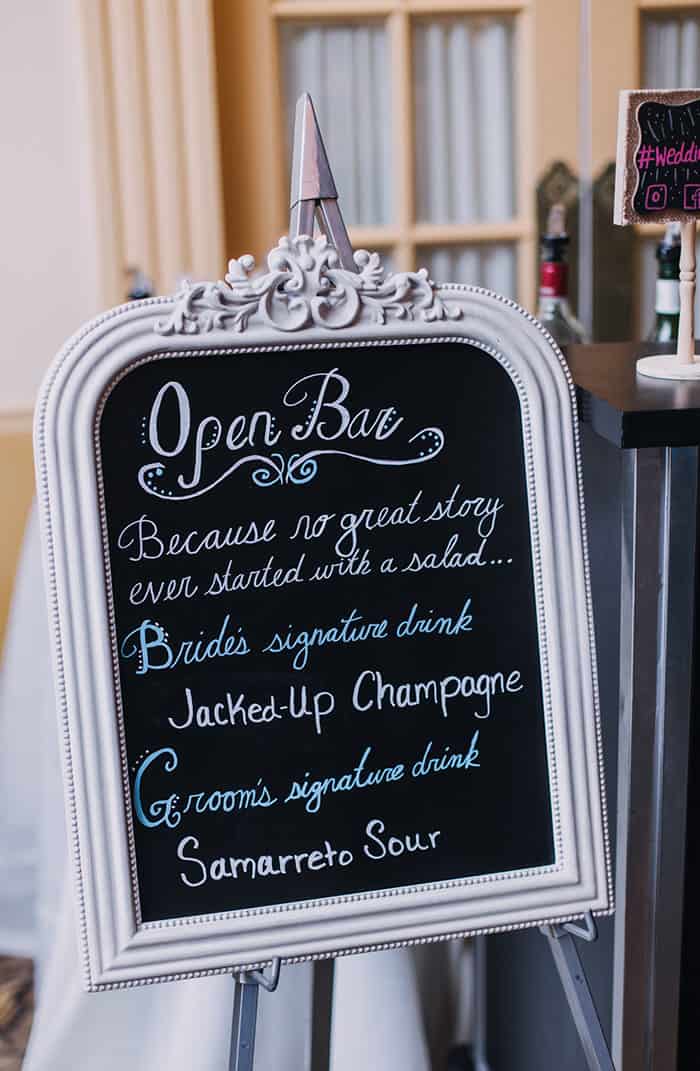 Open Bar
Because no great story
ever started with a salad...
Bride's signature drink
Jacked-Up Champagne
Groom's signature drink
Samarreto Sour